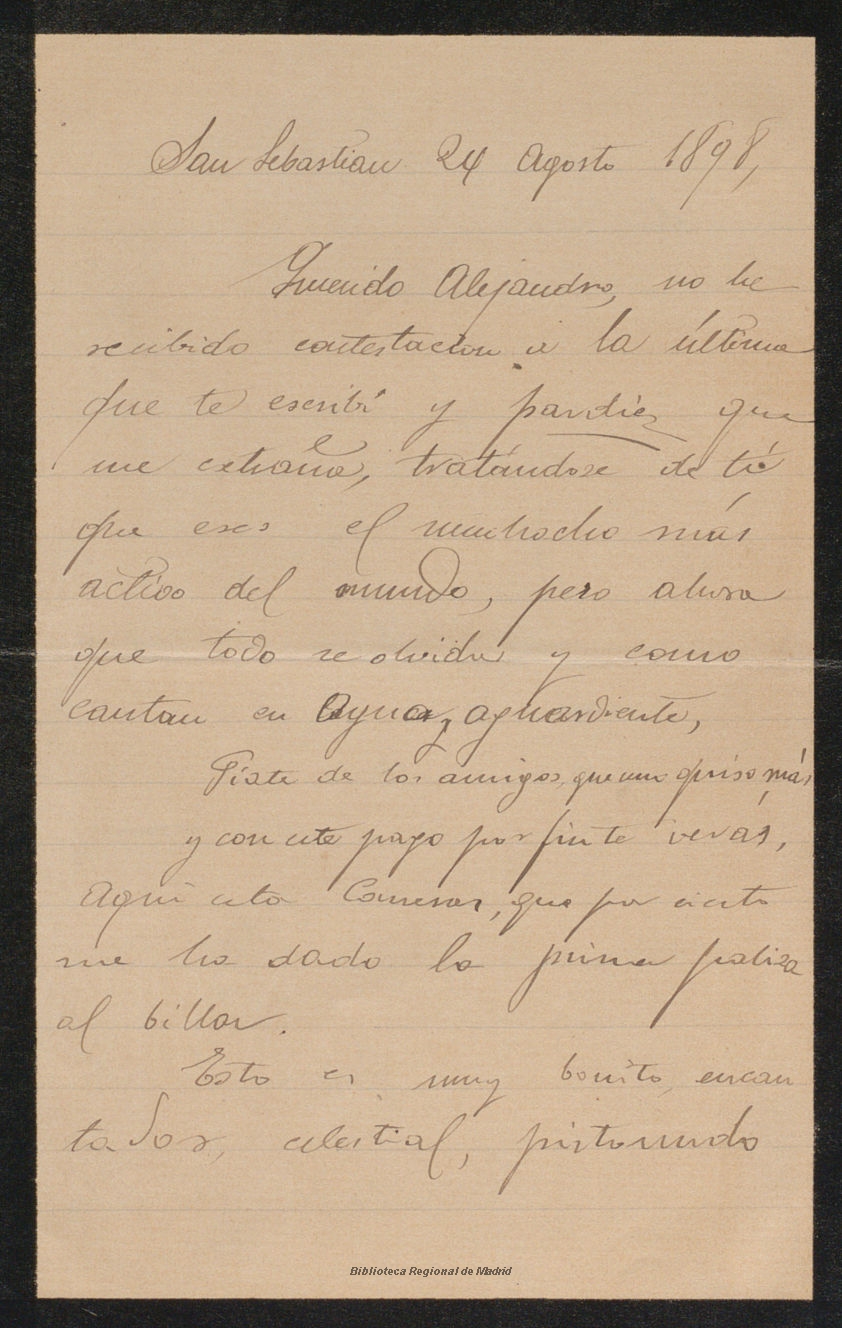 San Sebastian 24 Agosto 1898,
Querido Alejandro, no he
recibido contestacion a la última
que te escribí y pardiez que
me extraña, tratándose de tí
que eres el muchacho más
activo del mundo, pero ahora
que todo se olvida y como
cantan en Agua y aguardiente,
Fíate de los amigos, que uno quiso más
y con este pago por fin te verás,
Aqui esta que por cierto
me ha dado la primer paliza
al billar.
Esto es muy bonito, encan
tador, celestial, pistonudo
Biblioteca Regional de Madrid